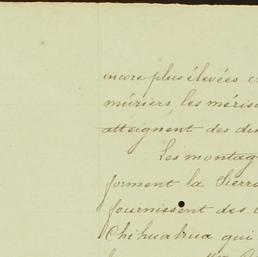 encore plus élevées
mûriers, les
atteignent des
Les
forment la Sierra
fournissent des
Chihuahua qui